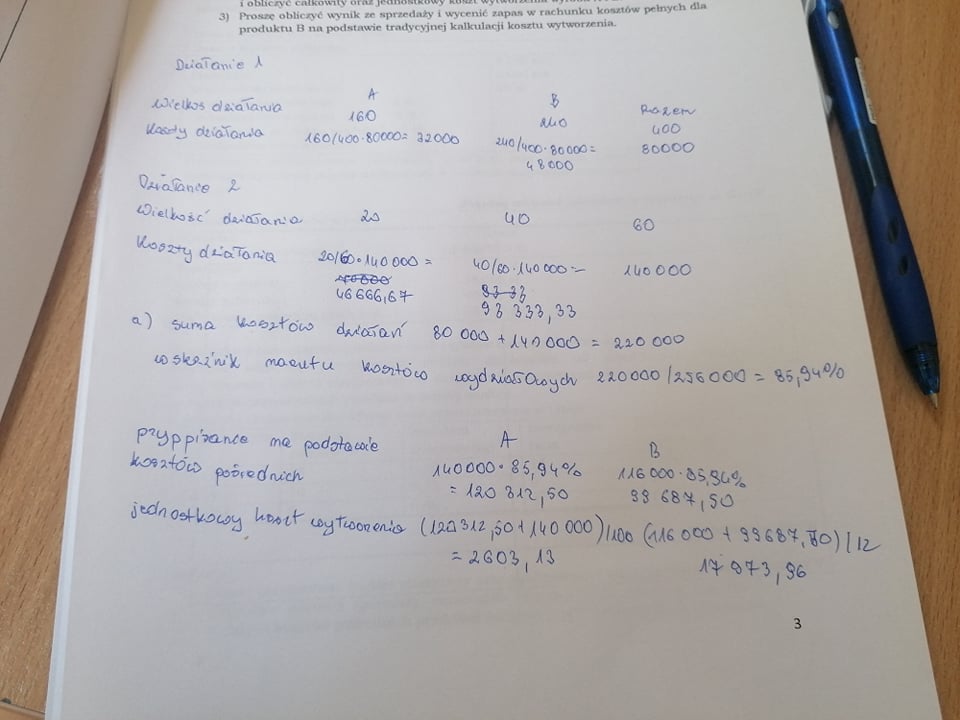 i obliczyć całkowity oraz jednostkowy koszt wytworzenia
3) Proszę obliczyć wynik ze sprzedaży i wycenić zapas w rachunku kosztów pełnych dla
produktu B na podstawie tradycyjnej kalkulacji kosztu wytworzenia.
Działanie 1
A B Razem
Wielkoś działania 160 240 400
Koszty działania 160/400·80000= 32000 240/400·80000= 80000
48000
Działanie 2
Wielkość działania 20 40 60
Koszty działania 20/60·140 000 = 40/60·140 000 = 140 000
46 666,67 93 333,33
a) suma kosztów działań 80 000 + 140 000 = 220 000
wskaźnik narzutu kosztów wydziałowych 220000/256000 = 85,94%
przyppisance na podstawie A B
kosztów pośrednich 140000·85,94% 116 000·85,94%
= 120 312,50 99 687,50
jednostkowy koszt wytworzenia (120 312,50 + 140 000)/100 (116 000 + 99687,50)/12
= 2603,13 17 973,96
3